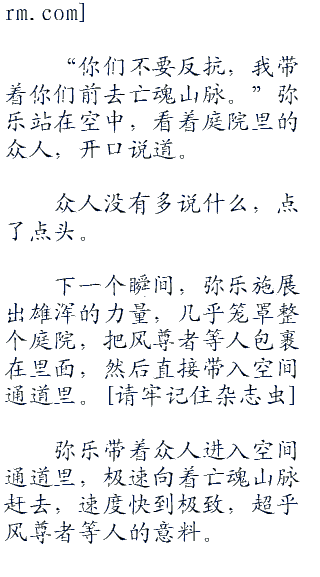 rm.com]
“你们不要反抗，我带
着你们前去亡魂山脉。”弥
乐站在空中，看着庭院里的
众人，开口说道。
众人没有多说什么，点
了点头。
下一个瞬间，弥乐施展
出雄浑的力量，几乎笼罩整
个庭院，把风尊者等人包裹
在里面，然后直接带入空间
通道里。[请牢记住杂志虫]
弥乐带着众人进入空间
通道里，极速向着亡魂山脉
赶去，速度快到极致，超乎
风尊者等人的意料。